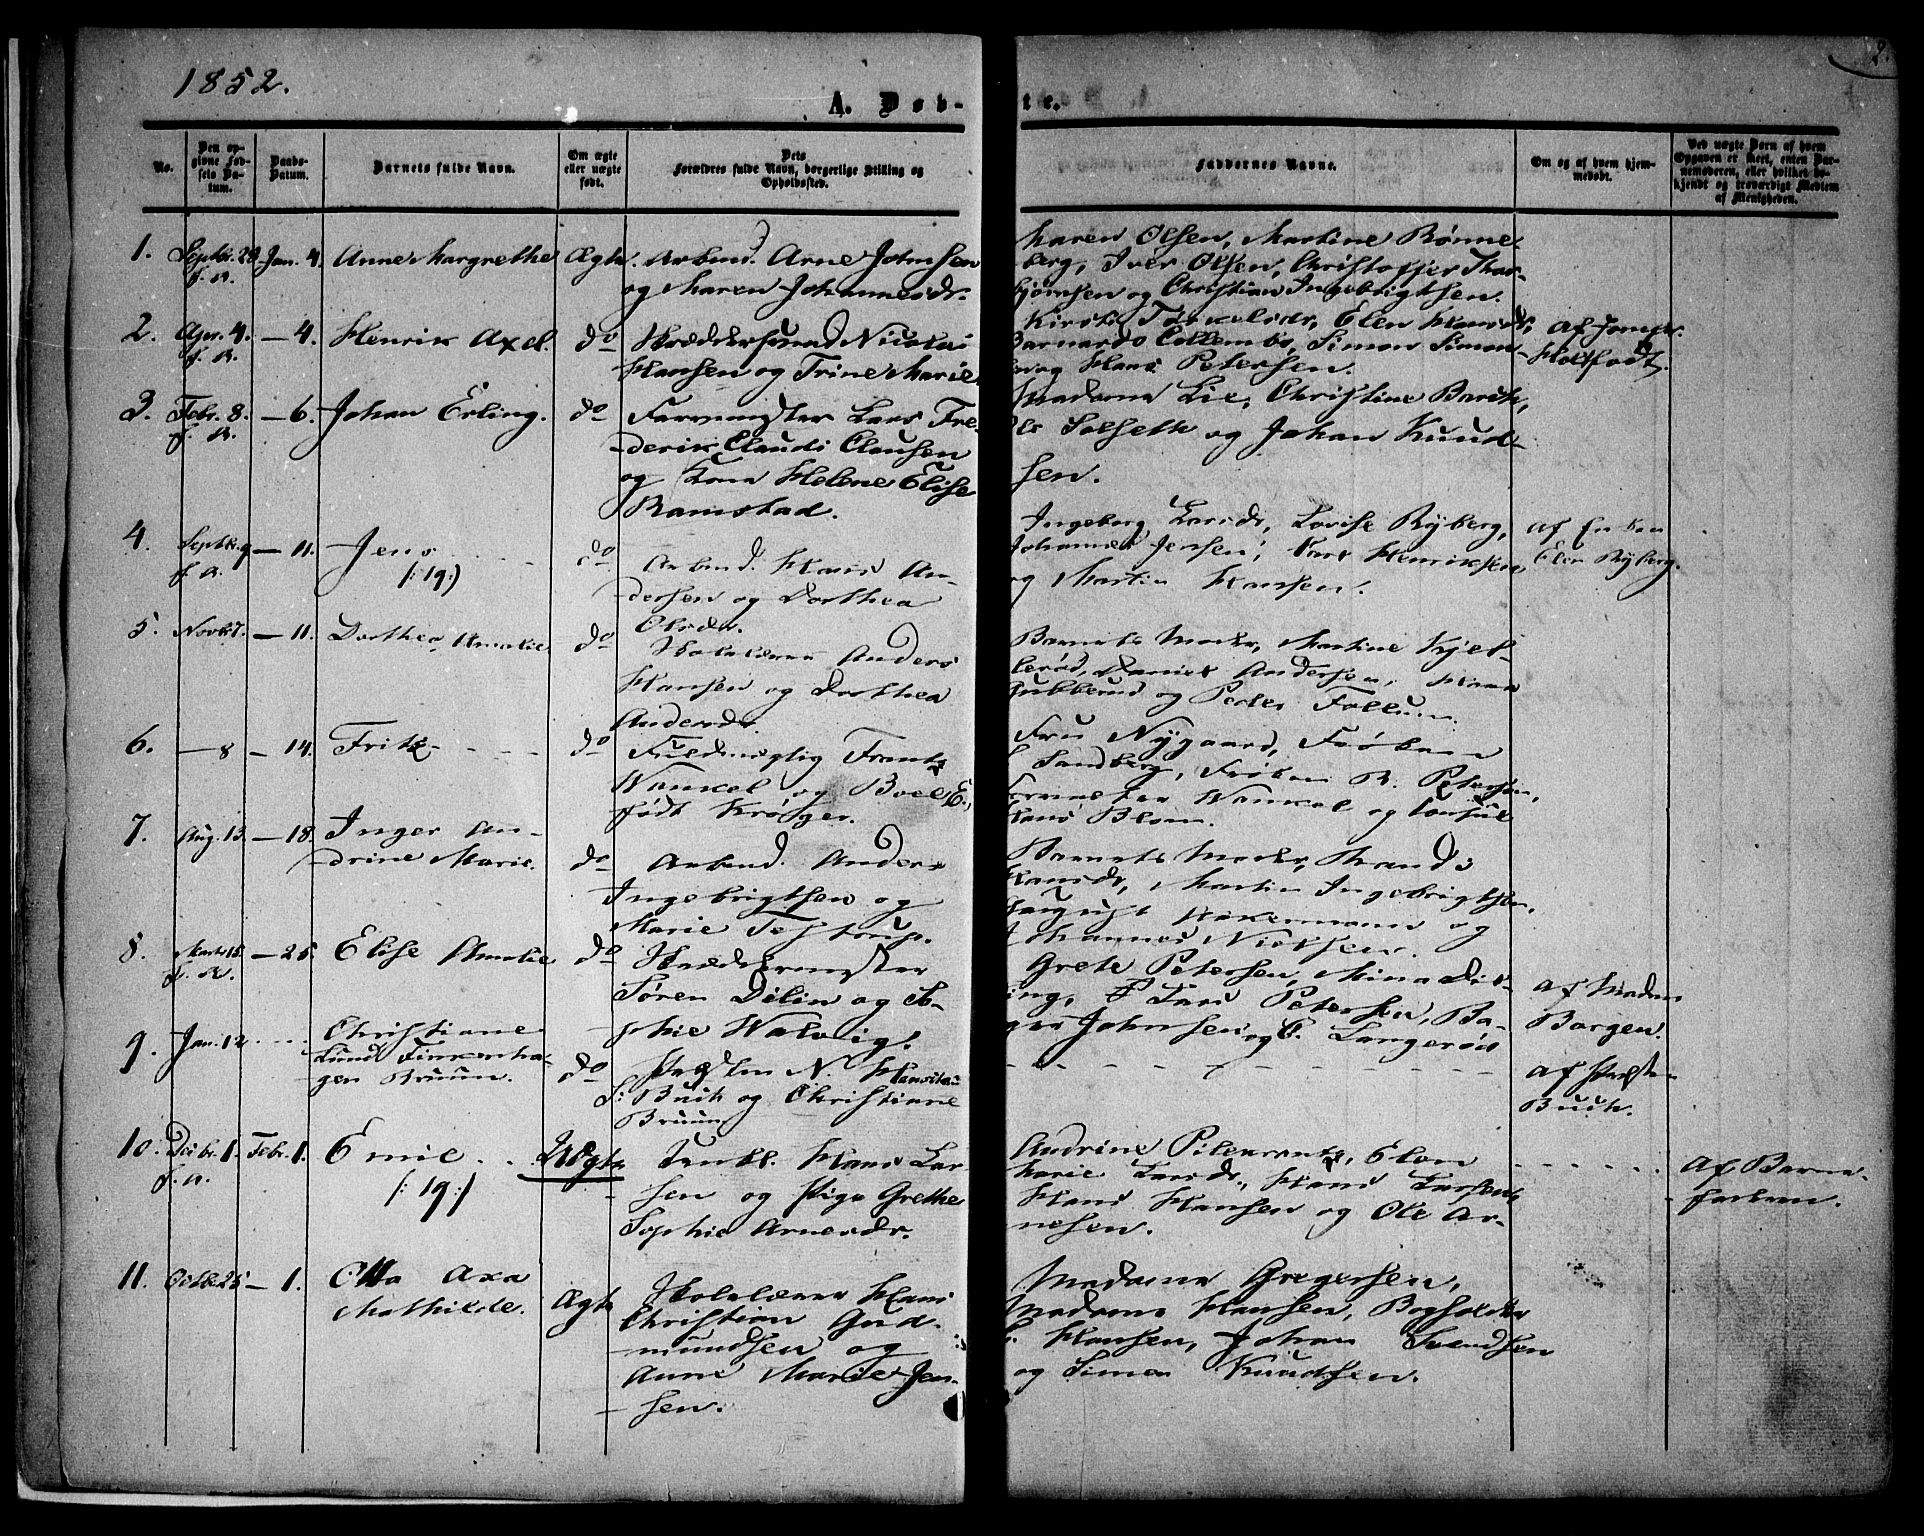 1852.
2.
A. Døb-
te.
No.
Den op-
givne Fød-
sels Da-
tum.
Daabs-
Datum.
Barnets fulde Navn.
Om ægte
eller uægte
født.
Dets
Forældres fulde Navn, borgerlige Stilling og
Opholdssted.
Faddernes Navne.
Om og af hvem hjem-
medøbt.
Ved uægte Børn af hvem
Opgaven er skeet, enten Bar-
nemoderen, eller hvilket be-
kjendt og troværdigt Medlem
af Menigheden.
1. Septbr. 29 Jan. 4. Anne Margrethe Ægte. Arbmd. Arne Johnsen
f. A.
og Maren Johannesdr.
Maren Olsen, Martine Rønne-
berg, Iver Olsen, Christoffer Thor-
bjørnsen og Christian Ingebrigtsen.
2. Apr. 4. — 4. Henrik Axel. do Skræddersvend Nicolai
f. A.
Hansen og Trine Marie
Kirsti Torkelsdr, Elen Hansdr,
Simon Simon-
og Hans Petersen.
af
3. Febr. 8. — 6. Johan Erling. do Farvemester Lars Fre-
f. A.
derik Claudi Clausen
og Kone Helene Elise
Ramstad.
Madame Lie, Christine Barth,
Ole Solseth og Johan Knud-
sen.
4. Septbr. 9 — 11. Jens do Arbmd. Hans An-
f. A.
(: 19:)
dersen og Dorthea
Olsdr.
Ingeborg Larsdr, Lovise Ryberg,
Johannes Jensen, Lars Henriksen,
og Martin Hansen.
af Enken
Elen Ryberg.
5. Novbr. 7. — 11. Dorthea Amalie do Skolelærer Anders
Hansen og Dorthea
Andersdr.
Barnets Moder, Martine Kjel-
lerød, Daniel Andersen, Hans
Gubberud og Peder Follum.
6. — 8 — 14. Fritz - - - - do Fuldmægtig Frants
Wankel og Boel E.,
født Krøger.
Fru Nygaard, Frøken
Sandberg, Frøken R. Petersen,
Wankel og Consul
Hans Blom.
7. Aug. 13. — 18. Inger An-
drine Marie. do Arbmd. Anders
Ingebrigtsen og
Marie Testrup.
Barnets Moder, Randi
Hansdr, Martin Ingebrigtsen,
August Ackermann og
Johannes Nielsen.
8. Marts 15. — 25. Elise Amalie do Skræddermester
f. A.
Søren Dilin og So-
phie Walvig.
Grete Petersen, Mina Dil-
ing, Lars Petersen, Bi-
Johnsen og C. Langerød
af Madm
Borgen.
9. Jan. 12 . . . . Christiane
Lund Finkenha-
gen Bruun. do Præsten N.
S. Buch og Christiane
Bruun
af Præsten
Buch.
10. Decbr. 1. Febr. 1. Emil . . Uægte Unkl. Hans Lar-
f. A.
(: 19:)
sen og Pige Grethe
Sophie Arnesdr.
Andrine Pilekrants, Elen
Marie Larsdr., Hans Larsen,
Hans Hansen og Ole Ar-
nesen.
Af Barne-
faderen.
11. Octbr. 25 — 1. Otto Axa
Mathilde. Ægte Skolelærer Hans
Christian Gud-
mundsen og
Anne Marie Jen-
sen.
Madame Gregersen,
Madame Hansen, Bogholder
Hansen, Johan Svendsen
og Simen Knudsen.